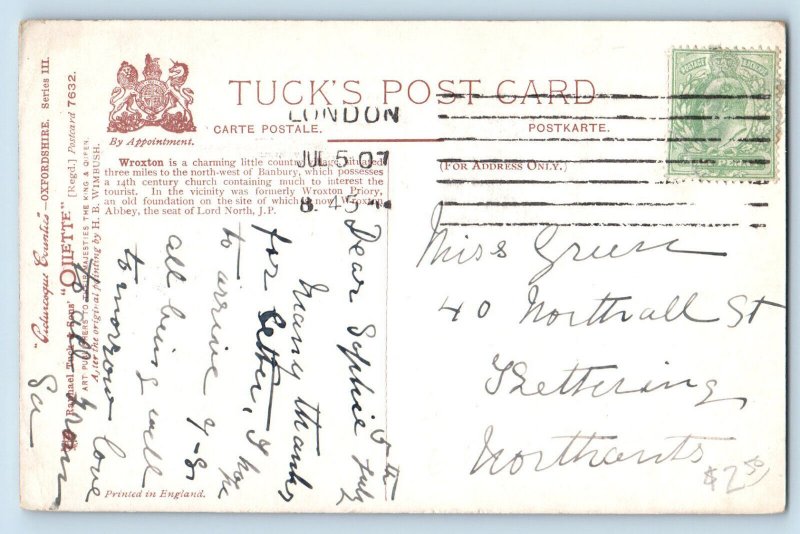 "Picturesque Counties"—OXFORDSHIRE. Series III.
Raphael Tuck & Sons' "OILETTE" [Regd.] Postcard 7632.
ART PUBLISHERS TO THEIR MAJESTIES THE KING & QUEEN.
After the original Painting by H. B. WIMBUSH.
By Appointment.
TUCK'S POST CARD
CARTE POSTALE.
POSTKARTE.
(FOR ADDRESS ONLY.)
Wroxton is a charming little country village, situated
three miles to the north-west of Banbury, which possesses
a 14th century church containing much to interest the
tourist. In the vicinity was formerly Wroxton Priory,
an old foundation on the site of which is now Wroxton
Abbey, the seat of Lord North, J.P.
LONDON
JUL 5 07
8.45
POSTAGE REVENUE
5th July
Dear Sophie
Many thanks
for letter, I hope
to arrive 7-8
all being well
tomorrow love
to all from
Miss Green
40 Northall St
Kettering
Northants
$2.50
Printed in England.